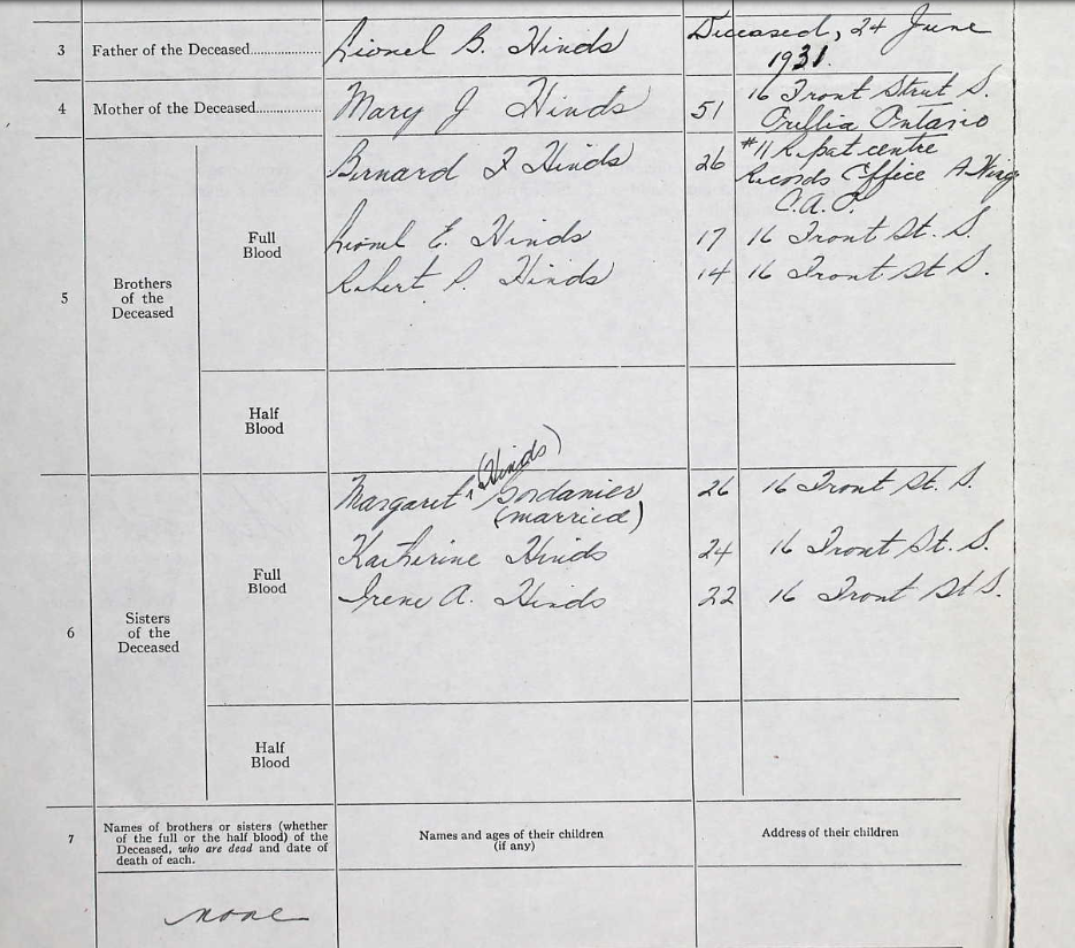 3 Father of the Deceased Lionel B. Hinds Deceased, 24 June
1931.
4 Mother of the Deceased Mary J Hinds 51 16 Front Street S.
Orillia Ontario
Bernard F Hinds 26 #11 Repat centre
Records Office A Wing
C.A.O.
Full
Blood
Lionel E. Hinds 17 16 Front St. S.
Robert P. Hinds 14 16 Front St S.
5 Brothers
of the
Deceased
Half
Blood
(Hinds)
Margaret ^ Gordanier 26 16 Front St. S.
(married)
Katherine Hinds 24 16 Front St. S.
Full
Blood
Irene A. Hinds 22 16 Front St S.
6 Sisters
of the
Deceased
Half
Blood
7 Names of brothers or sisters (whether
of the full or the half blood) of the
Deceased, who are dead and date of
death of each.
Names and ages of their children
(if any)
Address of their children
none